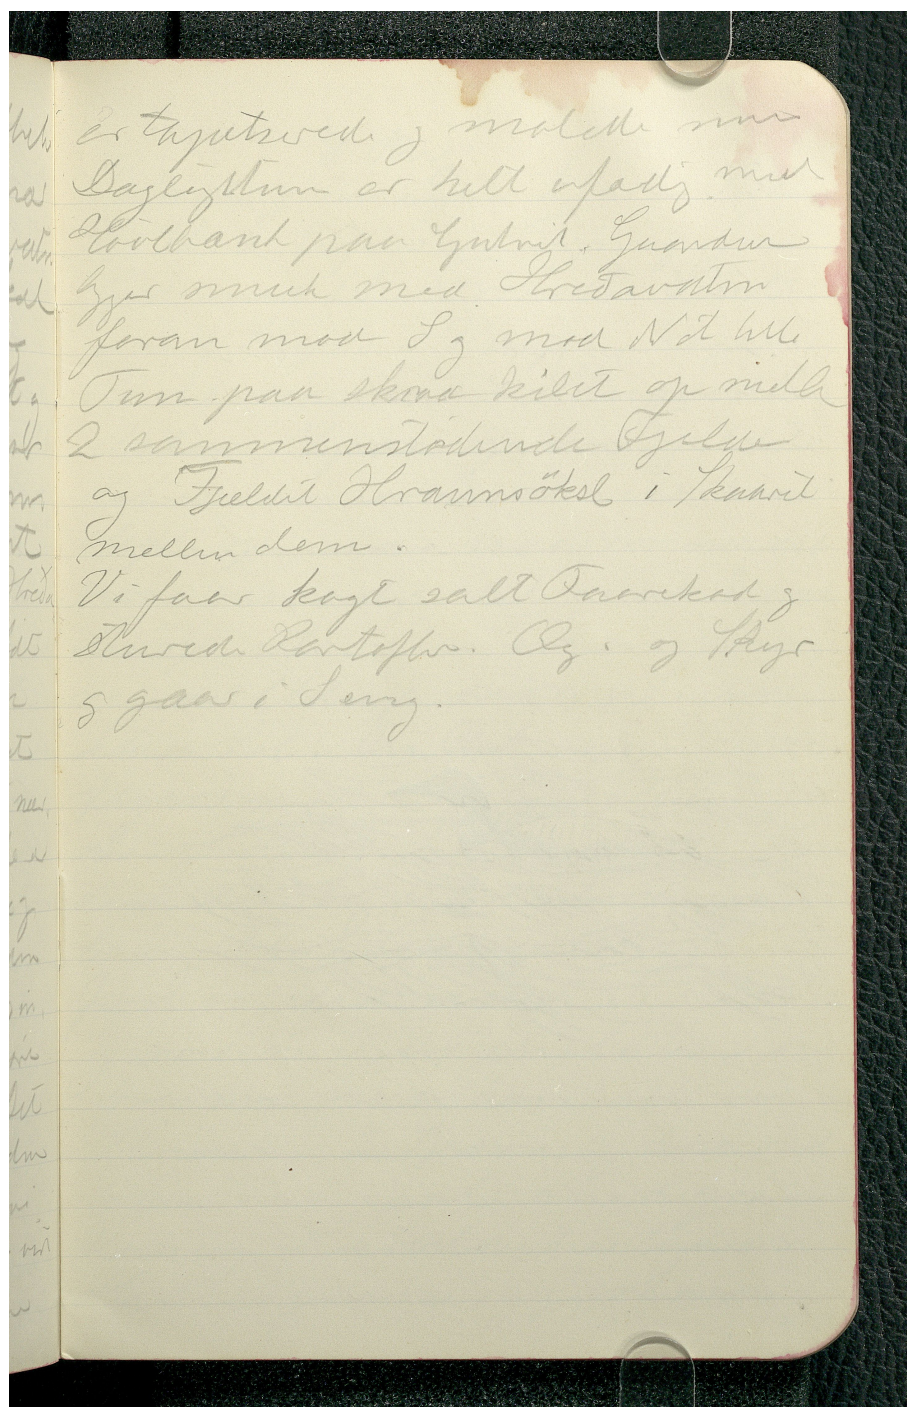 er tapetserede og malede men
Dagligstuen er helt ufærdig med
Høvlbænk paa Gulvet. Gaarden
ligger smuk med Hreðavatn
foran mod S og mod N et lille
Tun paa skraa kilet op mellem
2 sammenstødende Fjelde
og Fjeldet Hraunsöksl i Skaaret
mellem dem.
Vi faar kogt salt Faarekød og
skurede Kartofler. Og. og Skyr
og gaar i Seng.